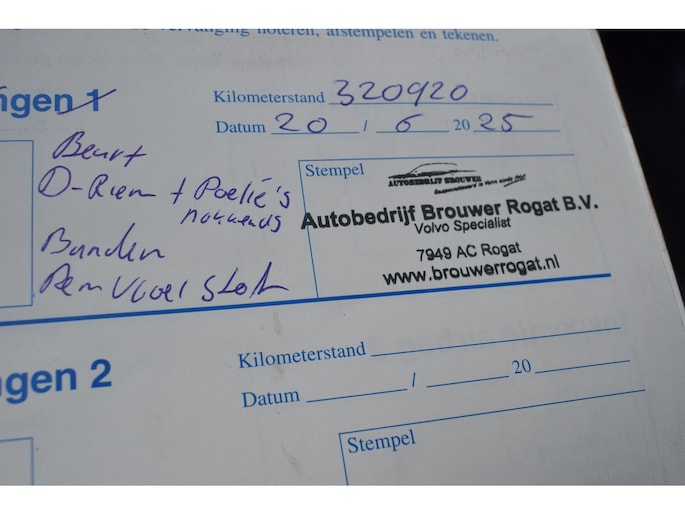 vervanging noteren, afstempelen en tekenen.
ngen 1
Kilometerstand 320920
Datum 20 / 6 2025
Beurt
D-Riem + Poelie's
Banden
Remvloeistof
Stempel
AUTOBEDRIJF BROUWER
Autobedrijf Brouwer Rogat B.V.
Volvo Specialist
7949 AC Rogat
www.brouwerrogat.nl
ngen 2
Kilometerstand
Datum / 20
Stempel